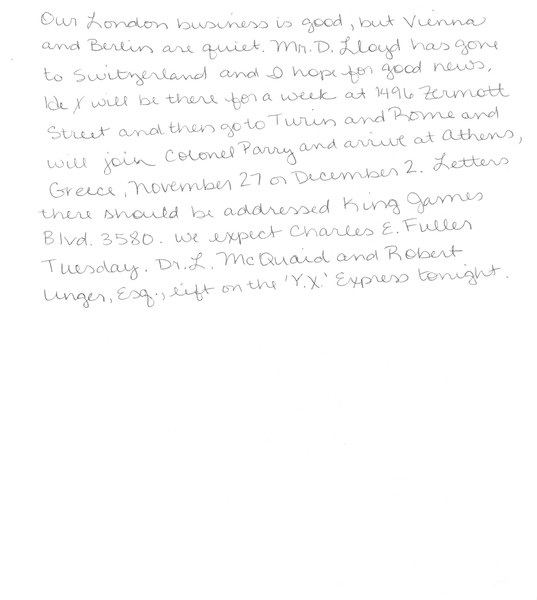 Our London business is good, but Vienna
and Berlin are quiet. Mr. D. Lloyd has gone
to Switzerland and I hope for good news,
He will be there for a week at 1496 Zermott
Street and then go to Turin and Rome and
will join Colonel Parry and arrive at Athens,
Greece, November 27 or December 2. Letters
there should be addressed King James
Blvd. 3580. We expect Charles E. Fuller
Tuesday. Dr. L. McQuaid and Robert
Unger, Esq., left on the 'Y.X.' Express tonight.